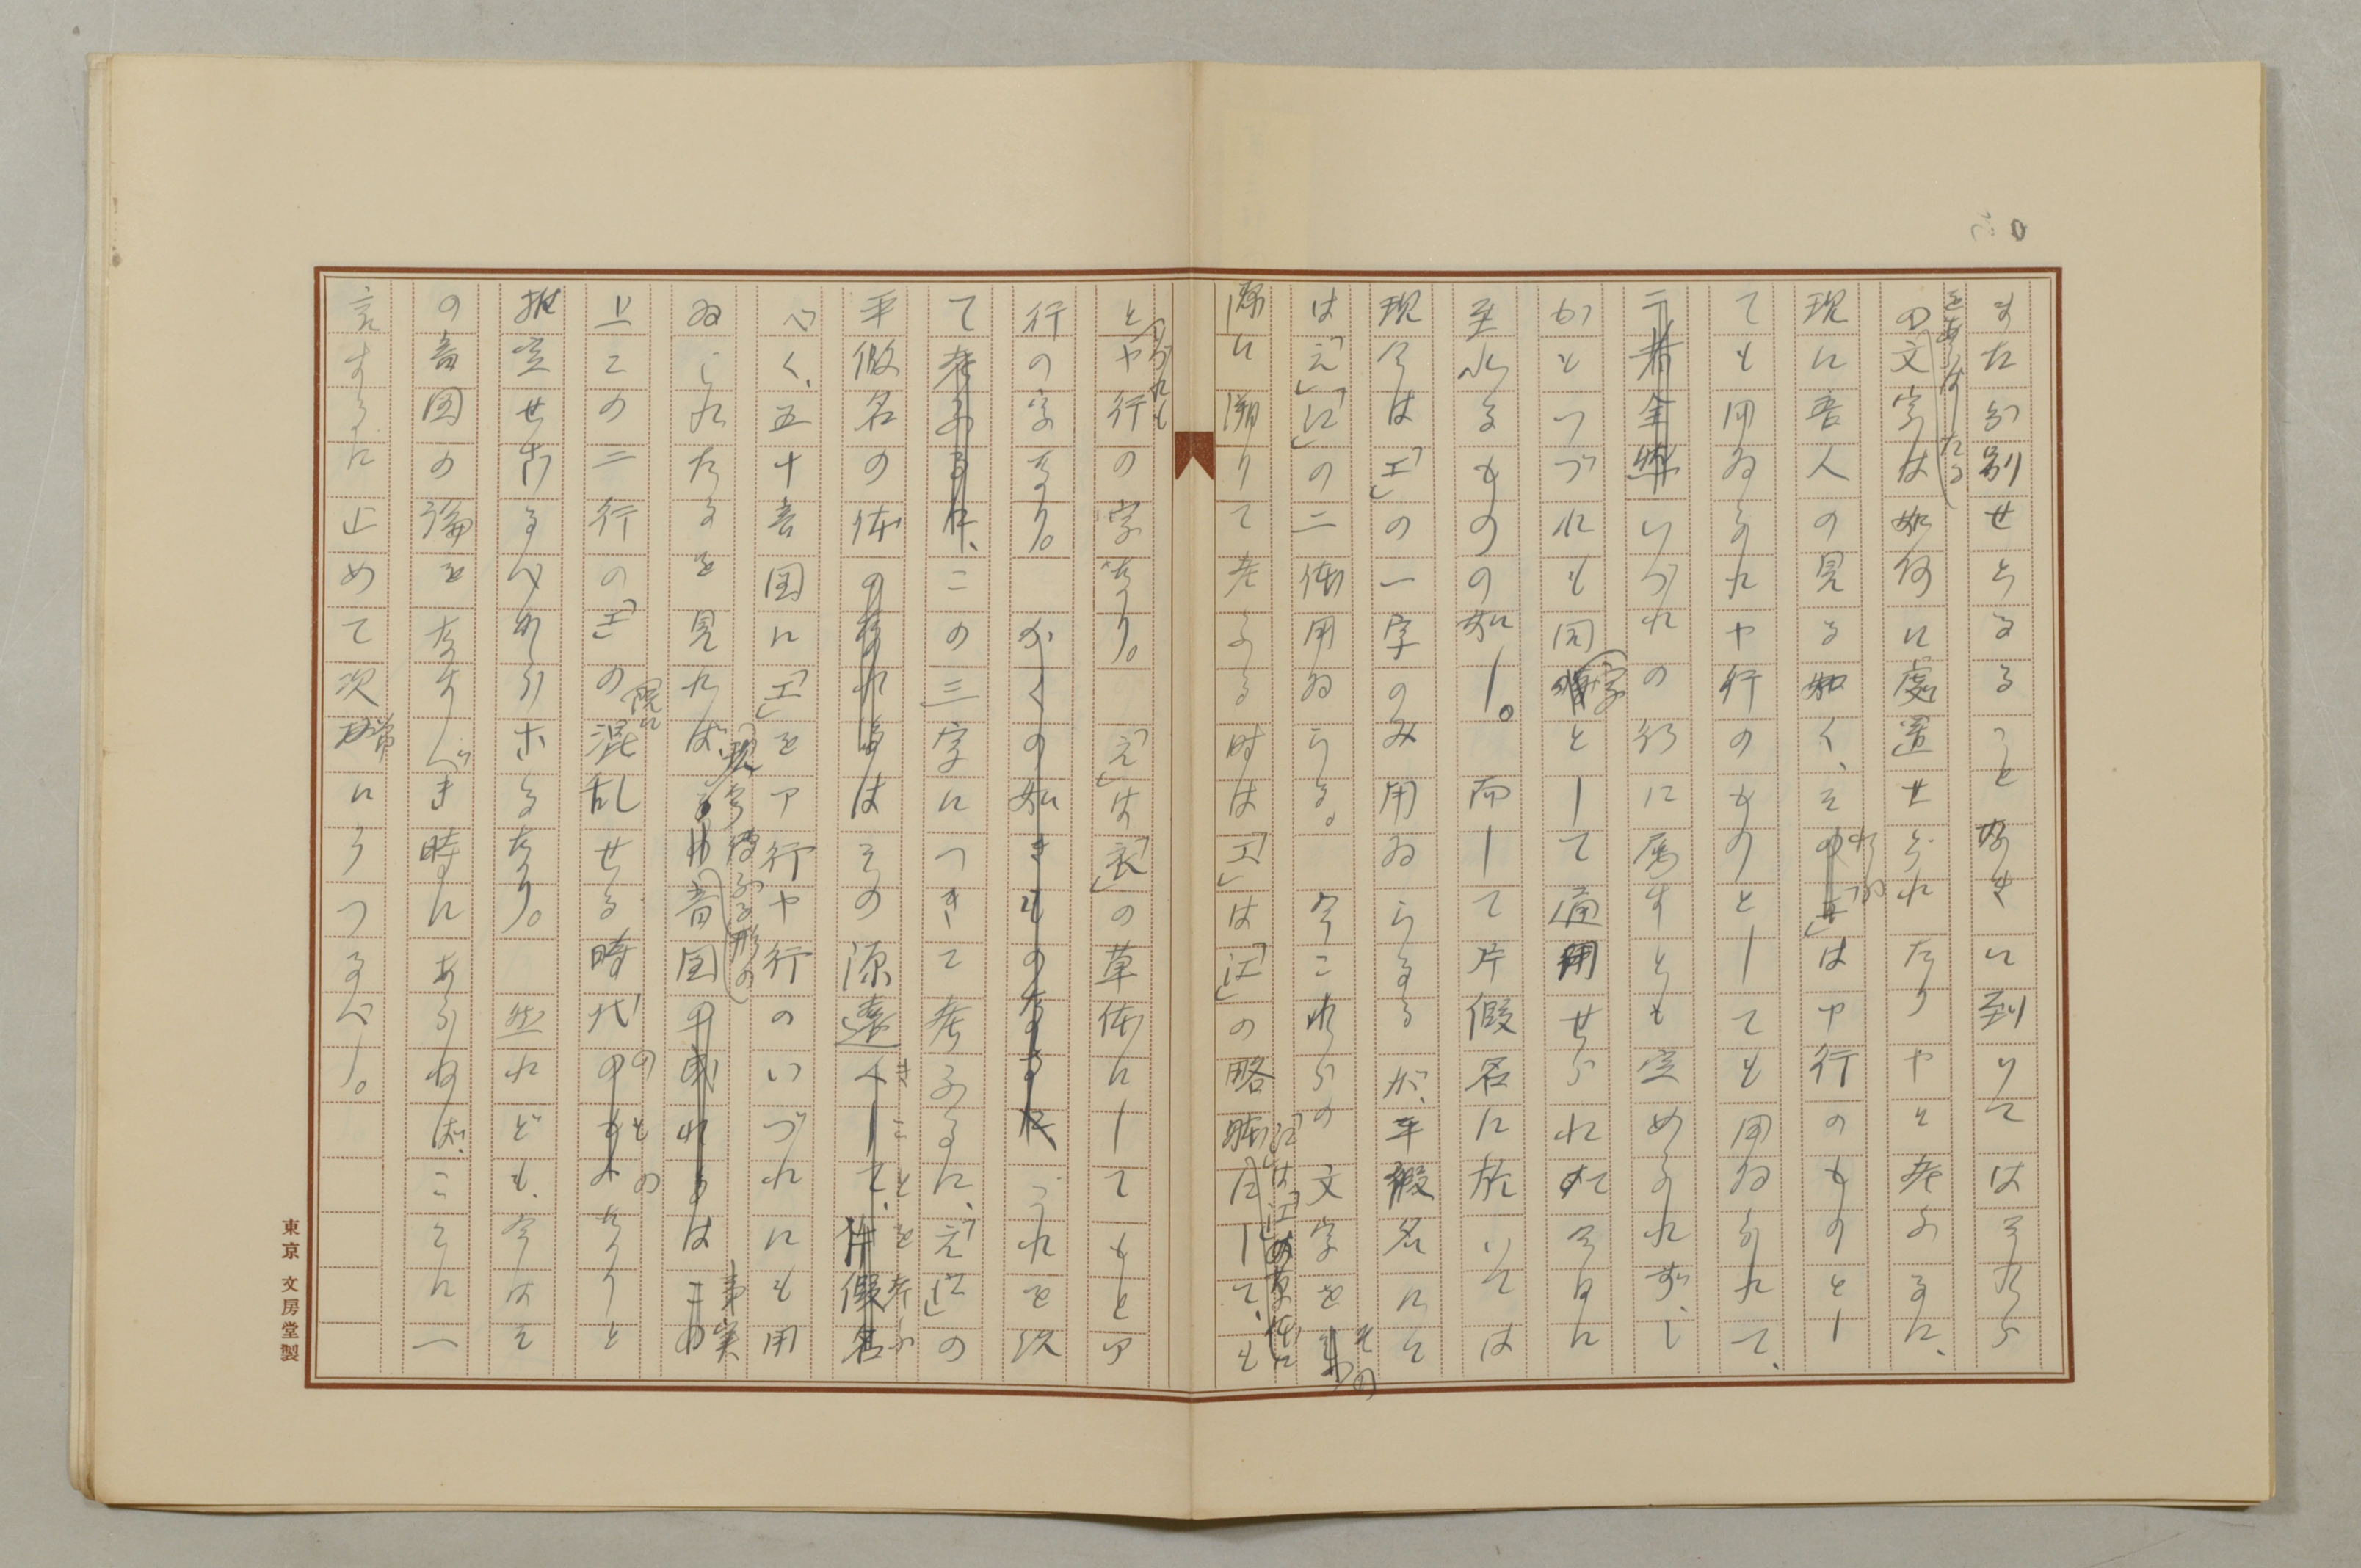 また分別せらるることなきに到りてはそれら
をあらはしたる
の文字は如何に處置せられたりやと考ふるに、
現に吾人の見る如く、それらがはヤ行のものとし
ても用ゐられヤ行のものとしても用ゐられて、
二者全然いづれの行に属すとも定められず、し
かもいづれも同字として通用せられて今日に
至れるものの如し。而して片假名に於いては
現今は「エ」の一字のみ用ゐらるるが、平假名にて
は「え」「江」の二体用ゐらる。今これらの文字をその
源に溯りて考ふる時は「エ」は「江」の略体
「江」は「江」の草体に
にして、も
といづれも
ヤ行の字なり。「え」は「衣」の草体にしてもとア
行の字なり。かくの如きものなるが、これを以
て考ふるに、この三字につきて考ふるに、「え」「江」の
平假名の体の〻はその源遠きことを考ふ
べく、五十音図に「エ」をア行ヤ行のいづれにも用
現今傳ふる形の
ゐられたるを見れば、音図の成れるは事実
既に
上この二行の「エ」の混乱せる時代のものなりと
推定せざるべからざるなり。然れども、今はそ
の音図の論をなすべき時にあらねば、これに一
言するに止めて次の階梯にうつるべし。
東京 文房堂製